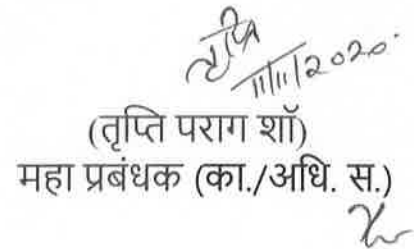 तृप्ति
11/11/2020.
(तृप्ति पराग शॉ)
महा प्रबंधक (का./अधि. स.)